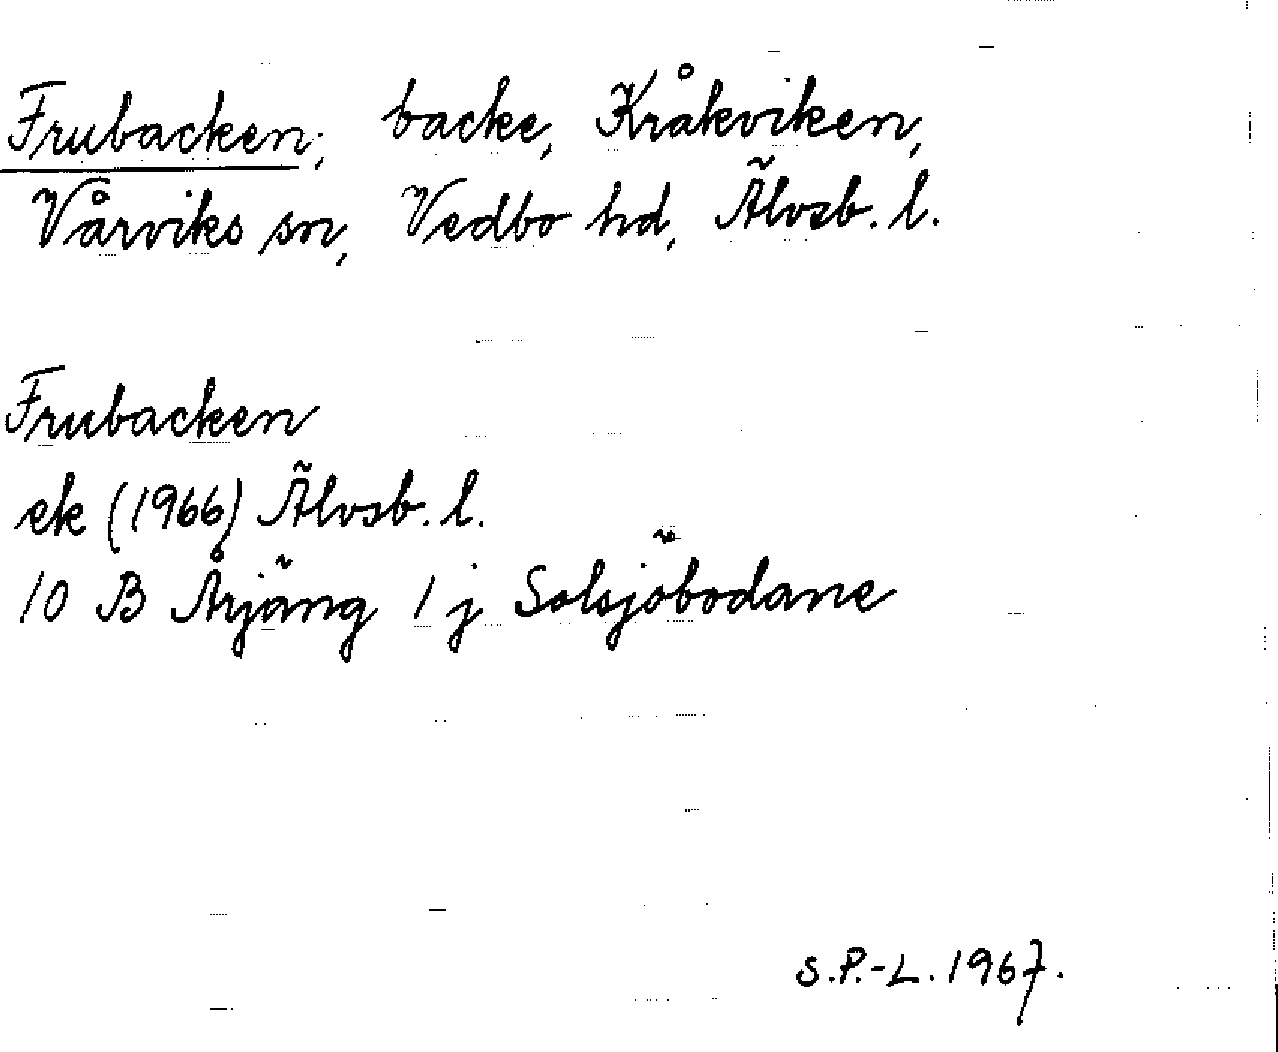 Frubacken, backe, Kråkviken,
Vårviks sn, Vedbo hd, Älvsb. l.
Frubacken
ek (1966) Älvsb. l.
10 B Årjäng 1 j Solsjöbodane
S.P.-L. 1967.